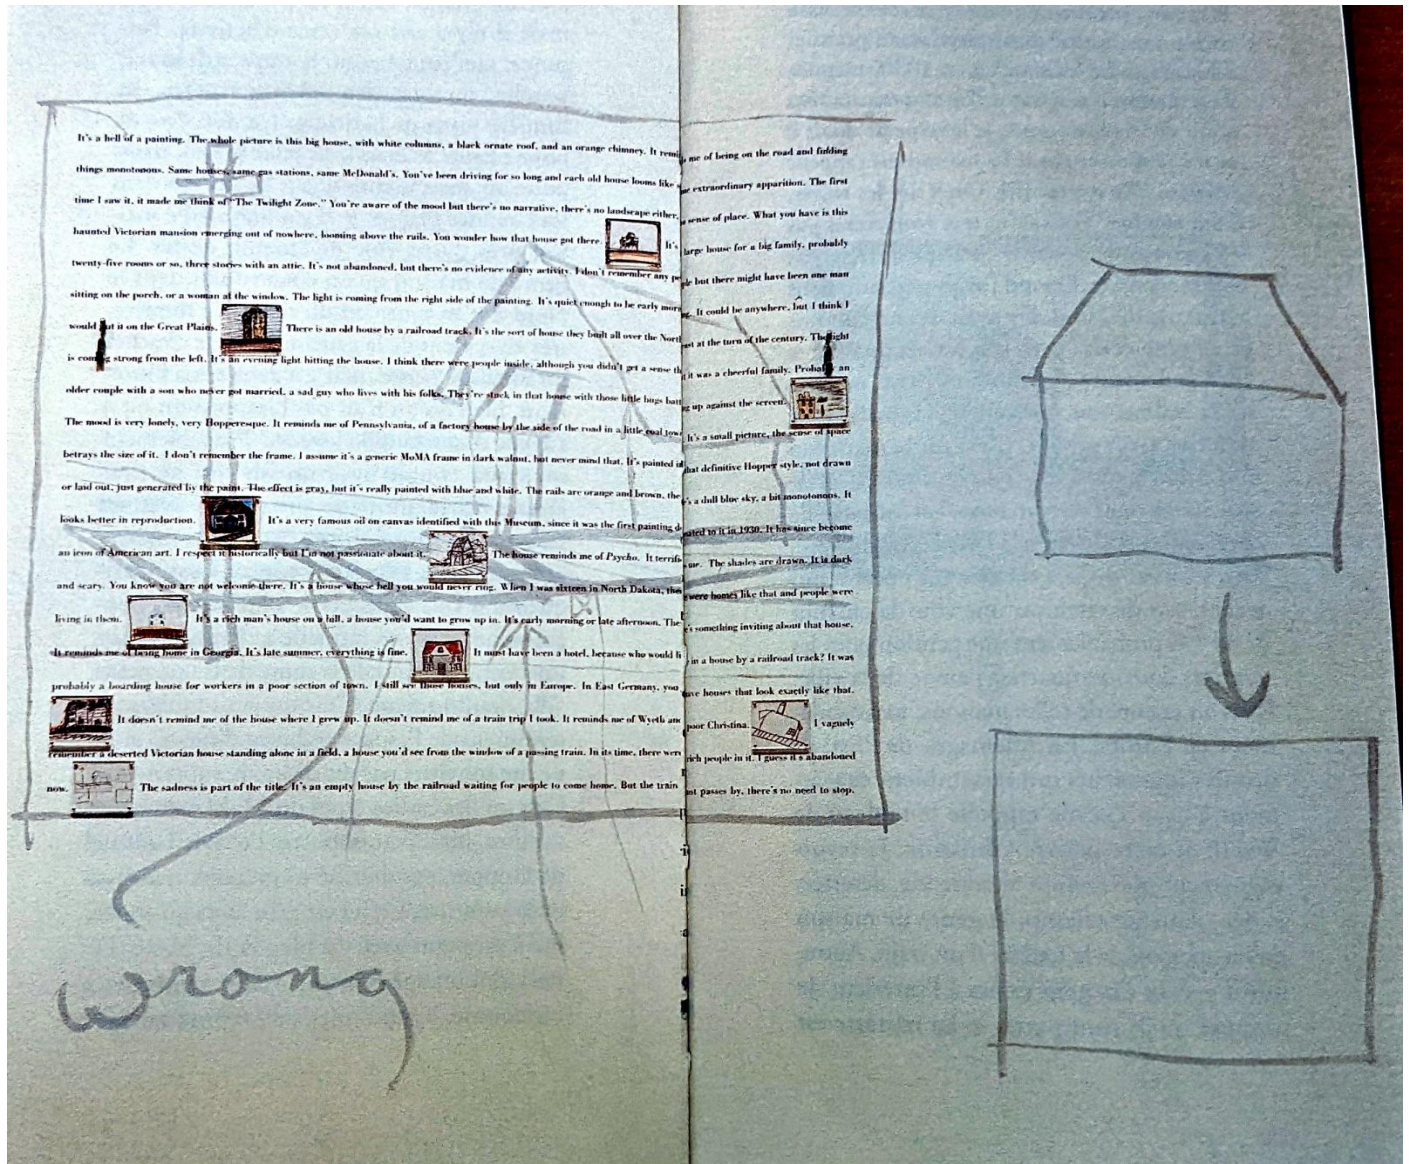 It's a hell of a painting. The whole picture is this big house, with white columns, a black ornate roof, and an orange chimney. It me of being on the road and finding
things monotonous. Same houses, same gas stations, same McDonald's. You've been driving for so long and each old house looms like extraordinary apparition. The first
time I saw it, it made me think of "The Twilight Zone." You're aware of the mood but there's no narrative, there's no landscape either, sense of place. What you have is this
haunted Victorian mansion emerging out of nowhere, looming above the rails. You wonder how that house got there. It's large house for a big family, probably
twenty-five rooms or so, three stories with an attic. It's not abandoned, but there's no evidence of any activity. I don't remember any but there might have been one man
sitting on the porch, or a woman at the window. The light is coming from the right side of the painting. It's quiet enough to be early It could be anywhere, but I think I
would put it on the Great Plains. There is an old house by a railroad track. It's the sort of house they built all over the at the turn of the century. The light
is coming strong from the left. It's an evening light hitting the house. I think there were people inside, although you didn't get a sense it was a cheerful family. Probably an
older couple with a son who never got married, a sad guy who lives with his folks. They're stuck in that house with those little bugs up against the screen.
The mood is very lonely, very Hopperesque. It reminds me of Pennsylvania, of a factory house by the side of the road in a little coal It's a small picture, the sense of space
betrays the size of it. I don't remember the frame. I assume it's a generic MoMA frame in dark walnut, but never mind that. It's painted that definitive Hopper style, not drawn
or laid out, just generated by the paint. The effect is gray, but it's really painted with blue and white. The rails are orange and brown, a dull blue sky, a bit monotonous. It
looks better in reproduction. It's a very famous oil on canvas identified with this Museum, since it was the first painting to it in 1930. It has since become
an icon of American art. I respect it historically but I'm not passionate about it. The house reminds me of Psycho. It me. The shades are drawn. It is dark
and scary. You know you are not welcome there. It's a house whose bell you would never ring. When I was sixteen in North Dakota, were homes like that and people were
living in them. It's a rich man's house on a hill, a house you'd want to grow up in. It's early morning or late afternoon. something inviting about that house.
It reminds me of being home in Georgia. It's late summer, everything is fine. It must have been a hotel, because who would in a house by a railroad track? It was
probably a boarding house for workers in a poor section of town. I still see those houses, but only in Europe. In East Germany, you houses that look exactly like that.
It doesn't remind me of the house where I grew up. It doesn't remind me of a train trip I took. It reminds me of Wyeth poor Christina. I vaguely
remember a deserted Victorian house standing alone in a field, a house you'd see from the window of a passing train. In its time, there rich people in it. I guess it's abandoned
now. The sadness is part of the title. It's an empty house by the railroad waiting for people to come home. But the train passes by, there's no need to stop.
wrong